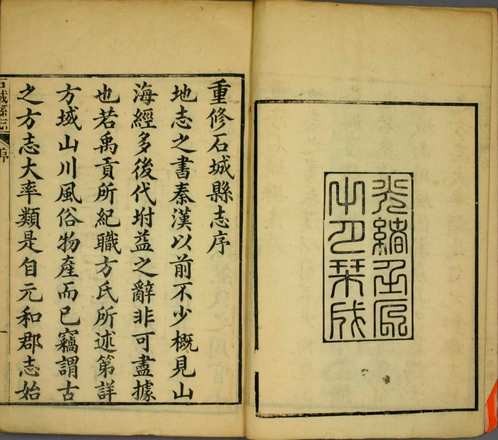 光緒壬辰
月栞成
重修石城縣志序
地志之書秦漢以前不少概見山
海經多後代坿益之辭非可盡據
也若禹貢所紀職方氏所述第詳
方域山川風俗物產而已竊謂古
之方志大率類是自元和郡志始
石城縣志 序